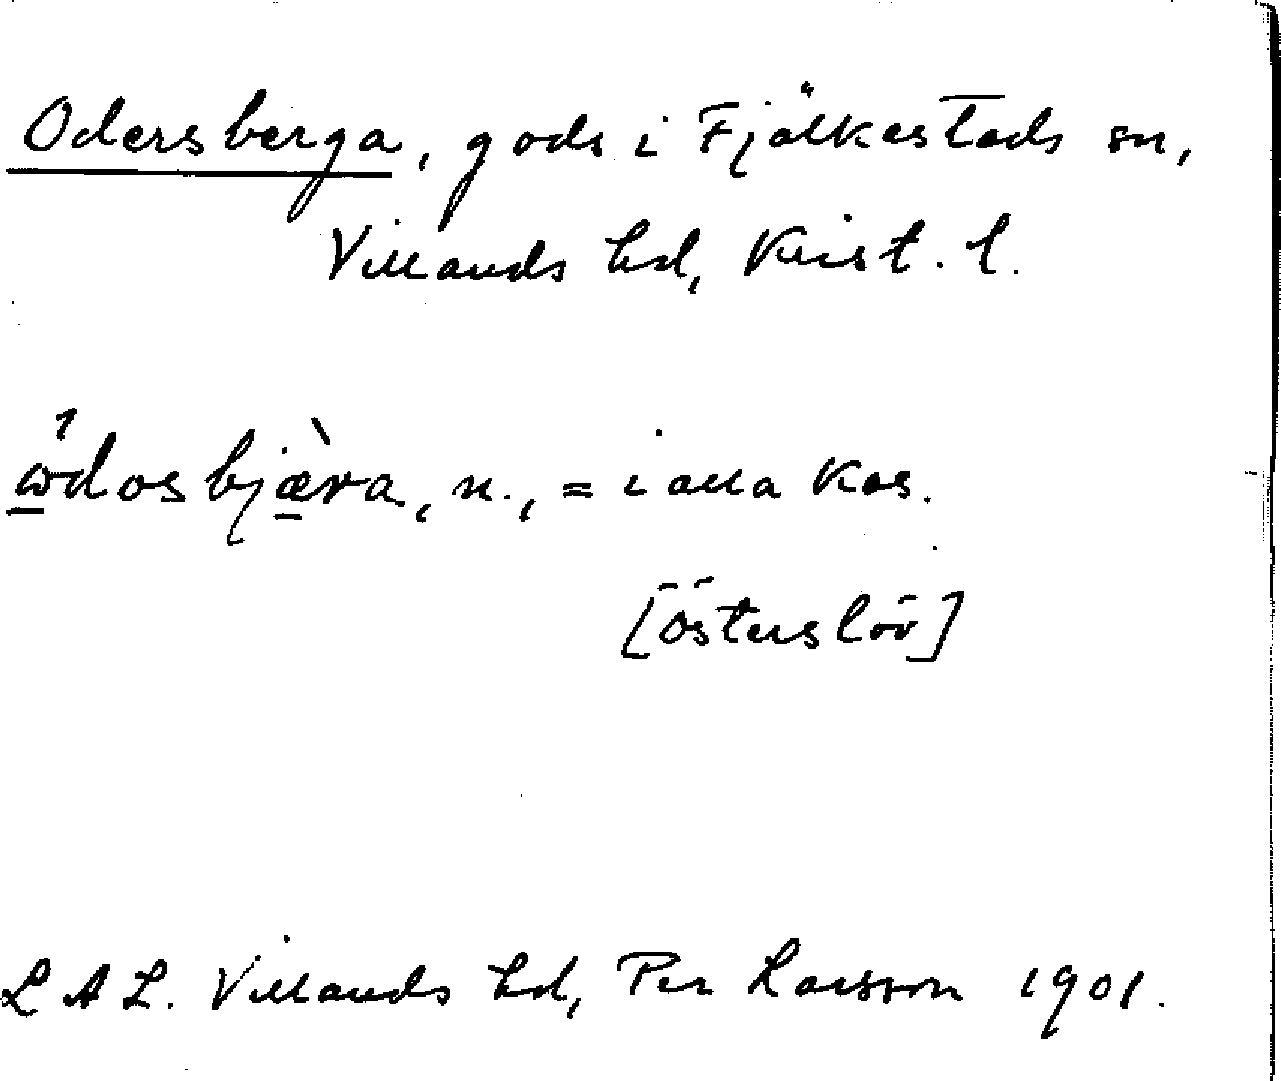 Odersberga, gods i Fjälkestads sn,
Villands hd, Krist. l.
ώ̲dosbjæ̲̀ra, n., = i alla kas.
[Österslöv]
L A L. Villands hd, Per Larsson 1901.